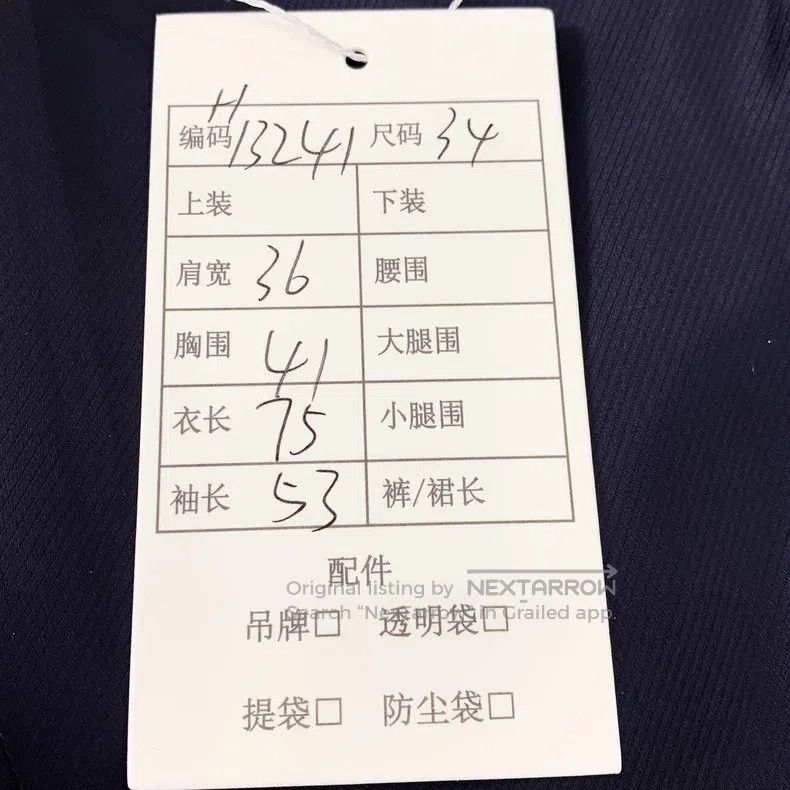 编码 H13241 尺码 34
上装 下装
肩宽 36 腰围
胸围 41 大腿围
衣长 75 小腿围
袖长 53 裤/裙长
配件
Original listing by NEXTARROW
Search “Nextarrow” in Grailed app.
吊牌□ 透明袋□
提袋□ 防尘袋□